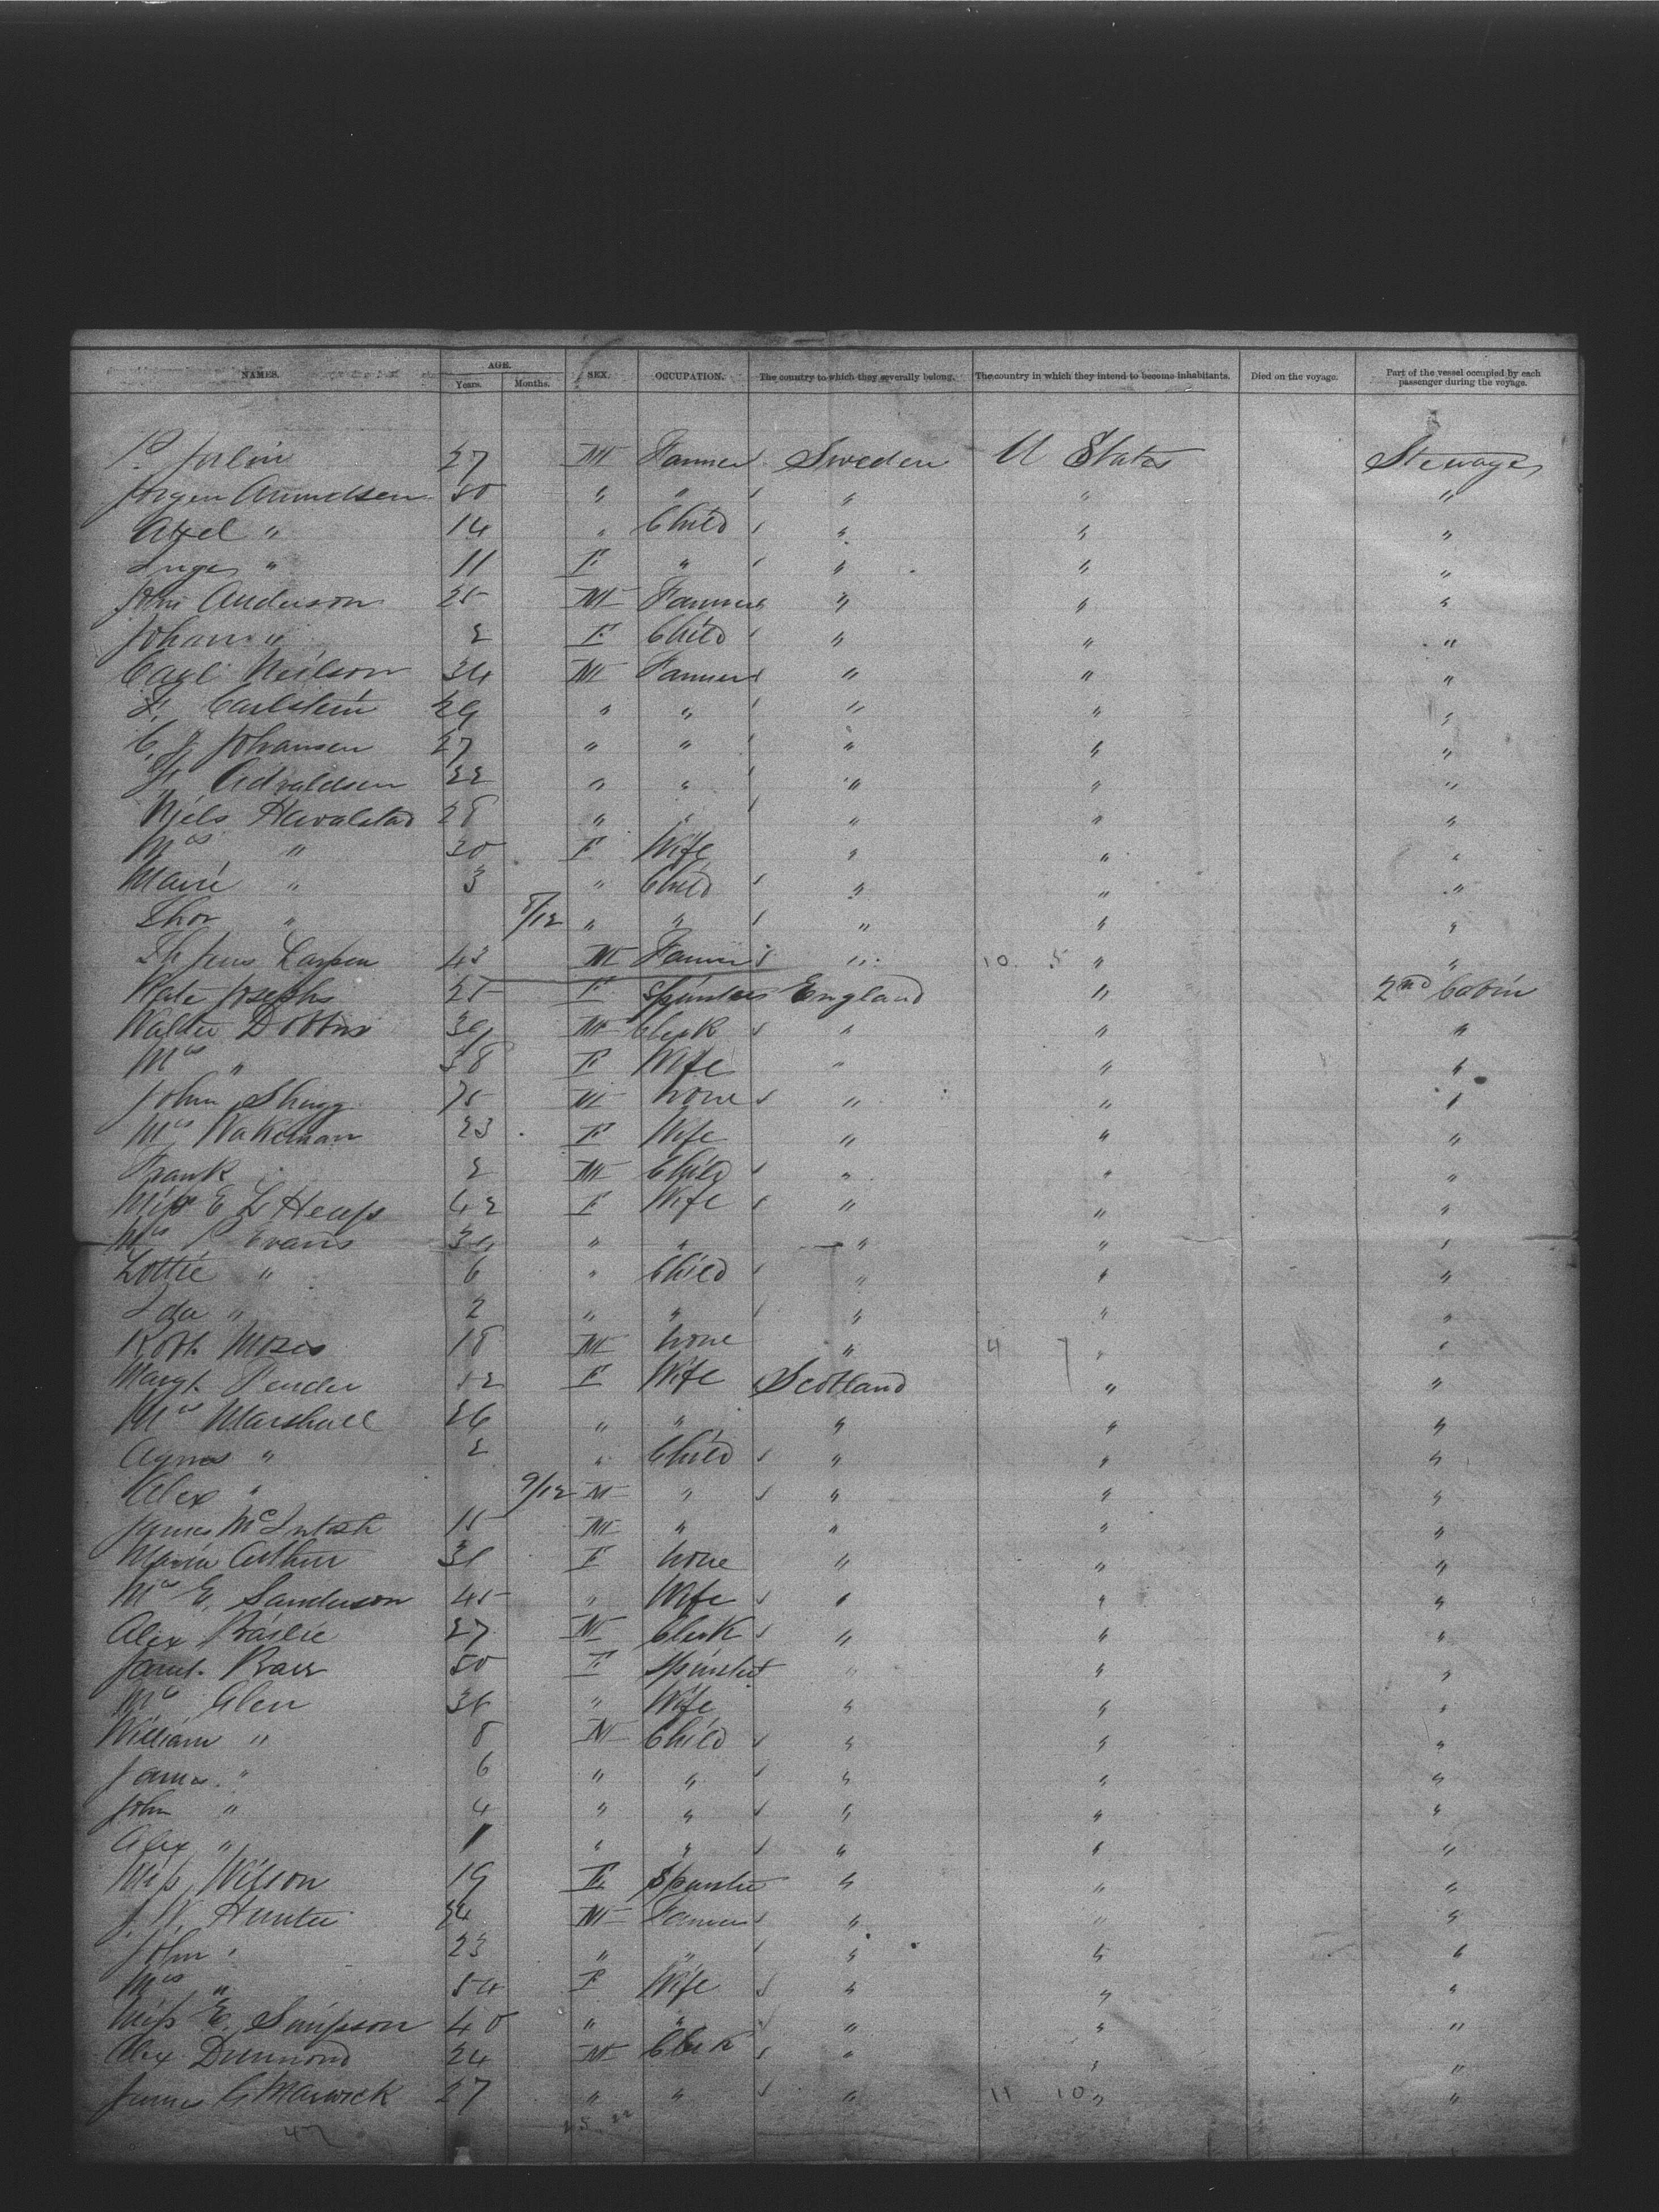 NAMES. AGE. Years. Months. SEX. OCCUPATION. The country to which they severally belong. The country in which they intend to become inhabitants. Died on the voyage. Part of the vessel occupied by each passenger during the voyage.
27 M Farmer Sweden U States Steerage
Jorgen Amundsen 50 " " " " "
Axel " 14 " Child " " "
Inge " 11 F " " " "
John Anderson 25 M Farmer " " "
Johan " 2 F Child " " "
Carl Neilson 34 M Farmer " " "
F. Carlstein 29 " " " " "
C. J. Johansen 27 " " " " "
22 " " " " "
Njels Havalstad 28 " " " " "
Mrs " 30 F Wife " " "
Marie " 3 " Child " " "
Thor " 8/12 " " " " "
Larsen 43 M Farmer " 10 5 " "
Kate Josephs 25 F Spinster England " 2nd Cabin
Walter Dobbns 39 M Clerk " " "
Mrs " 38 F Wife " " "
John Shugg 75 M none " " "
Mrs Wakeman 23 F Wife " " "
Frank 2 M Child " " "
Miss E L Heaps 42 F Wife " " "
Mrs P Evans 34 " " " " "
Lottie " 6 " Child " " "
Ida " 2 " " " " "
Robt. Moses 18 M none " 4 7 " "
Margt. Pender 52 F Wife Scotland " "
Mrs Marshall 26 " " " " "
Agnes " 2 " Child " " "
Alex " 9/12 M " " " "
James McIntosh 15 M " " " "
Maria Arthur 31 F none " " "
Mrs E. Sanderson 45 " Wife " " "
Alex 27 M Clerk " " "
50 F Spinster " " "
Mrs Glen 36 " Wife " " "
William " 8 M Child " " "
James " 6 " " " " "
John " 4 " " " " "
Alex " 1 " " " " "
Miss Wilson 19 F Spinster " " "
J. W. Hunter M Farmer " " "
John " 23 " " " " "
Mrs " 54 F Wife " " "
Miss E. Simpson 40 " " " " "
Alex Drumond 24 M Clerk " " "
James G Marwick 27 " " " 11 10 " "
47 25 22